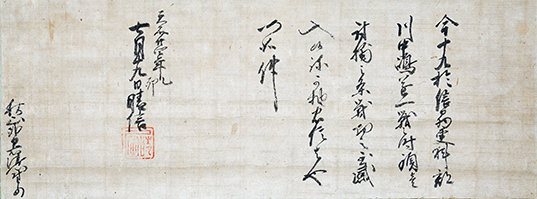 今十九於信州更科郡
川中嶋遂一戦之時頸壱
討捕之条戦功之至感
入候弥可抽忠信者也
仍如件
天文廿四年乙卯
七月十九日晴信